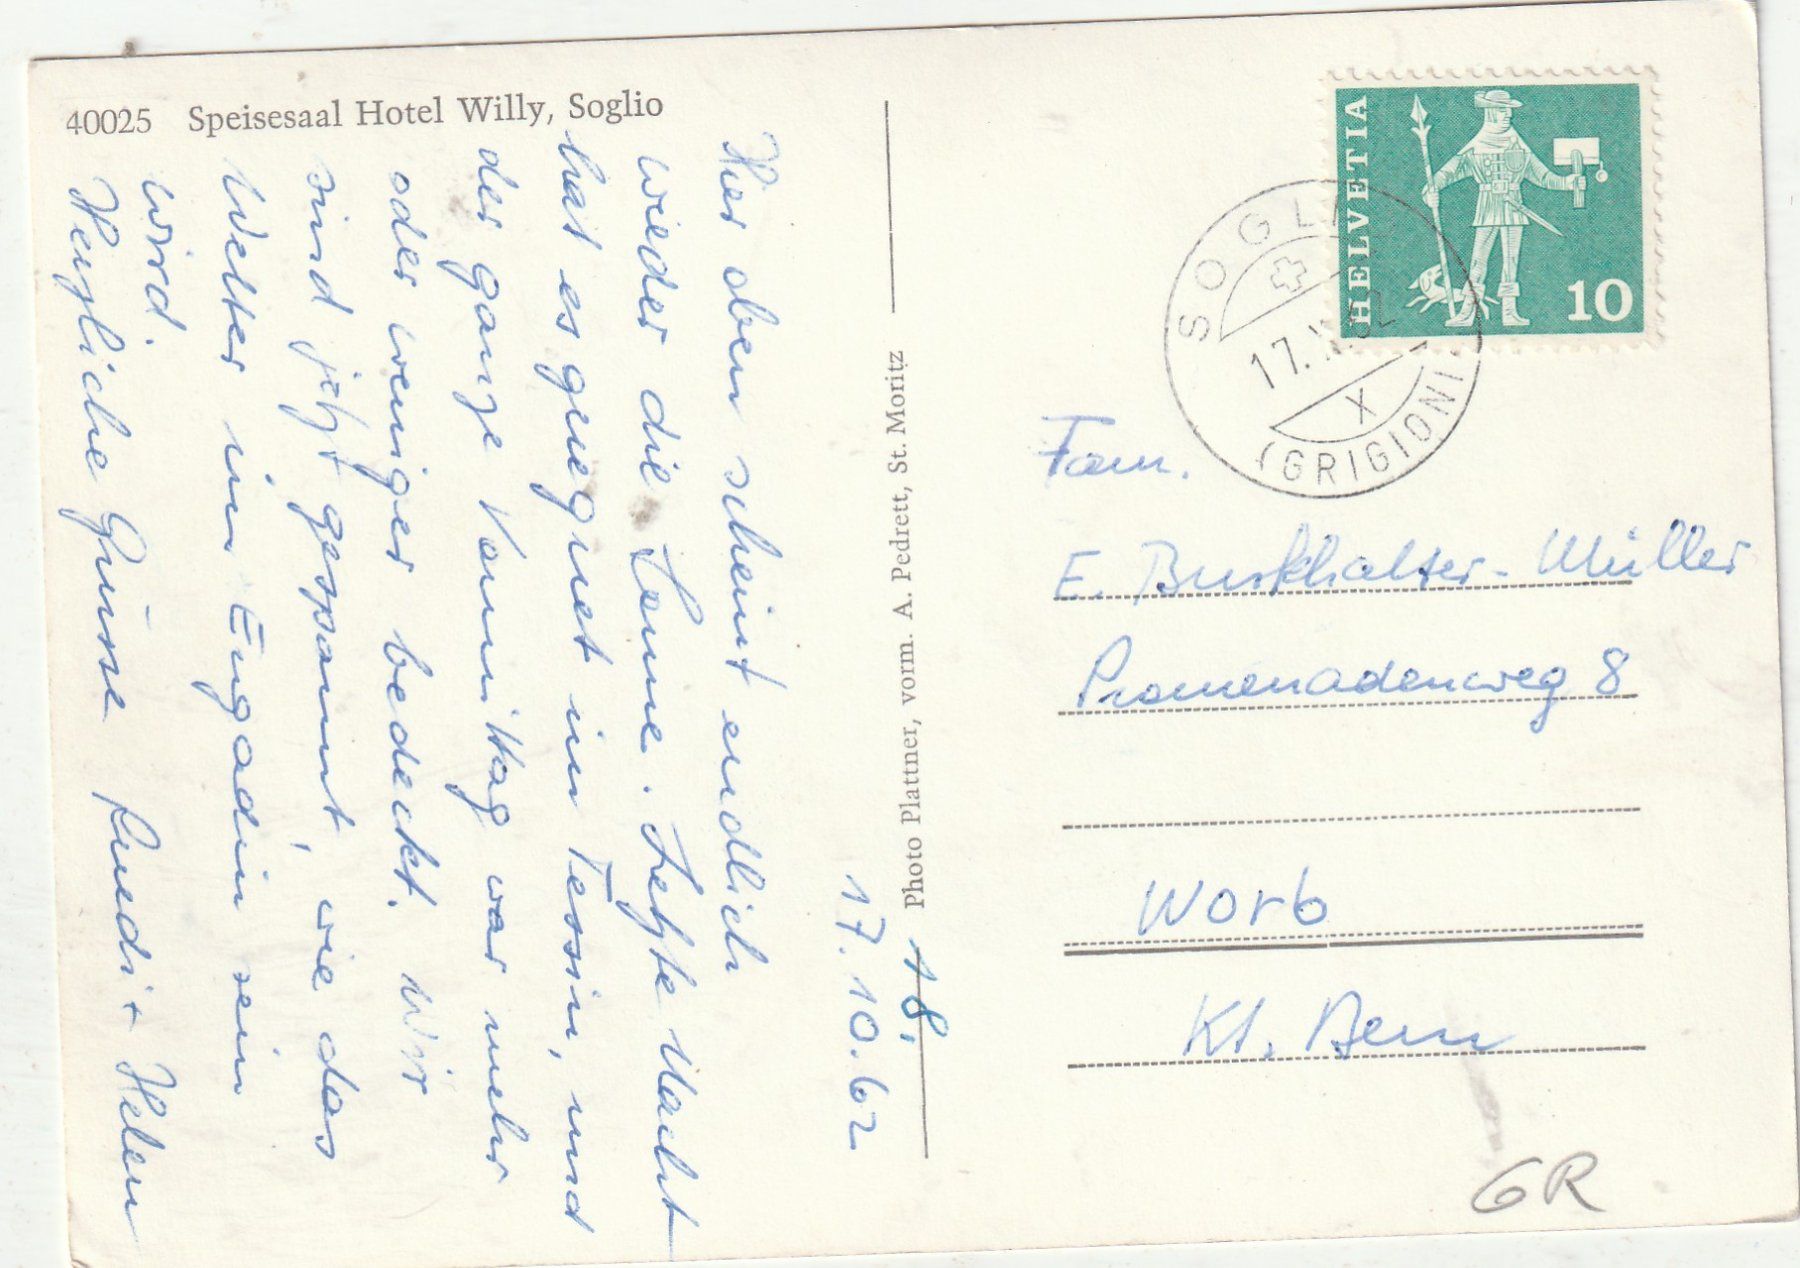 40025 Speisesaal Hotel Willy, Soglio
17.10.62
Hier oben scheint endlich
wieder die Sonne. Letzte Nacht
hat es geregnet im Tessin, und
der ganze Vormittag war mehr
oder weniger bedeckt. Wir
sind jetzt gespannt, wie das
Wetter im Engadin sein
wird.
Herzliche Grüsse Ruedi + Helen
Photo Plattner, vorm. A. Pedrett, St. Moritz
18.
HELVETIA
10
SOGLIO
17.X.62
X
(GRIGIONI)
Fam.
E. Burkhalter-Müller
Promenadenweg 8
Worb
Kt. Bern
GR